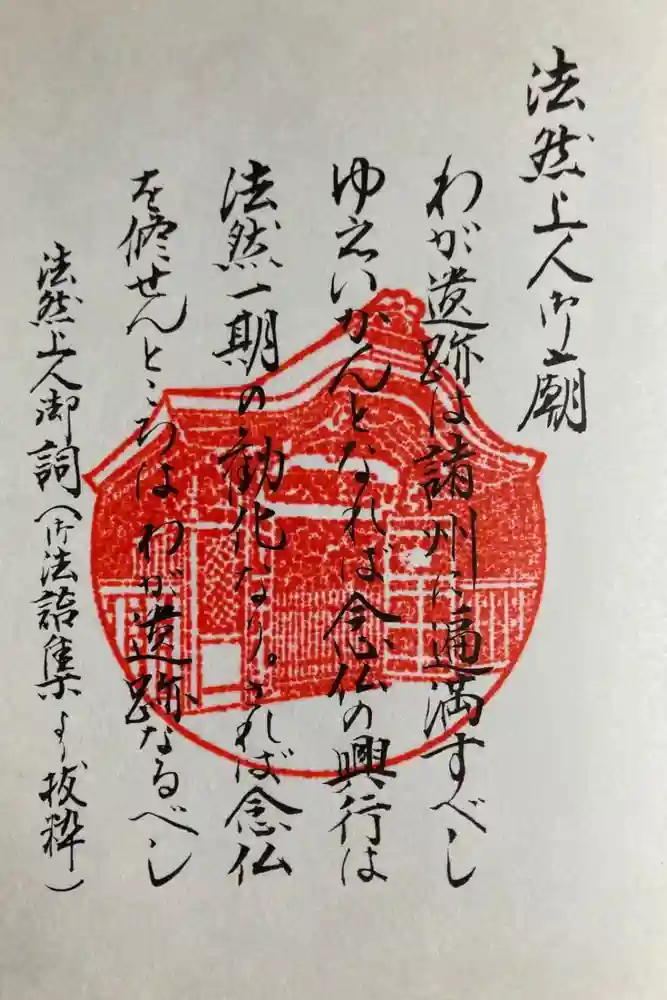 法然上人御廟
わが遺跡は諸州に遍満すべし
ゆえいかんとなれば念仏の興行は
法然一期の勧化なり。されば念仏
を修せんところはわが遺跡なるべし
法然上人御詞（御法語集より抜粋）